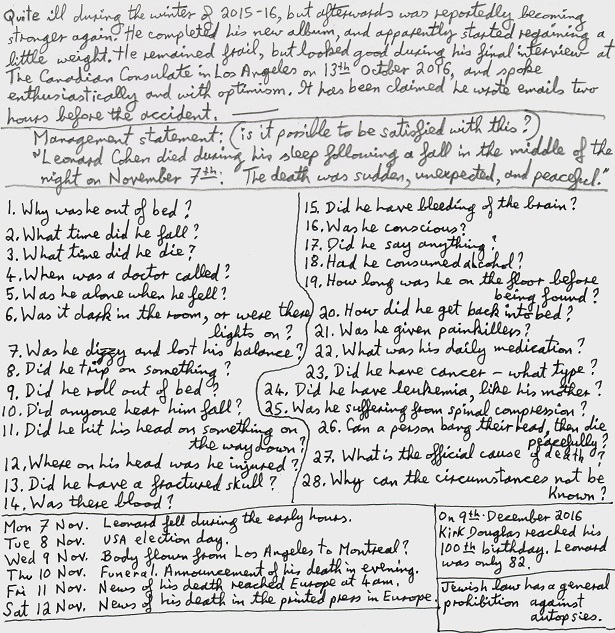 Quite ill during the winter of 2015-16, but afterwards was reportedly becoming
stronger again. He completed his new album, and apparently started regaining a
little weight. He remained frail, but looked good during his final interview at
The Canadian Consulate in Los Angeles on 13th October 2016, and spoke
enthusiastically and with optimism. It has been claimed he wrote emails two
hours before the accident.
Management statement: (is it possible to be satisfied with this?)
"Leonard Cohen died during his sleep following a fall in the middle of the
night on November 7th. The death was sudden, unexpected, and peaceful."
1. Why was he out of bed?
2. What time did he fall?
3. What time did he die?
4. When was a doctor called?
5. Was he alone when he fell?
6. Was it dark in the room, or were there
lights on?
7. Was he dizzy and lost his balance?
8. Did he trip on something?
9. Did he roll out of bed?
10. Did anyone hear him fall?
11. Did he hit his head on something on
the way down?
12. Where on his head was he injured?
13. Did he have a fractured skull?
14. Was there blood?
15. Did he have bleeding of the brain?
16. Was he conscious?
17. Did he say anything?
18. Had he consumed alcohol?
19. How long was he on the floor before
being found?
20. How did he get back into bed?
21. Was he given painkillers?
22. What was his daily medication?
23. Did he have cancer – what type?
24. Did he have leukemia, like his mother?
25. Was he suffering from spinal compression?
26. Can a person bang their head, then die
peacefully?
27. What is the official cause of death?
28. Why can the circumstances not be
known?
Mon 7 Nov. Leonard fell during the early hours.
Tue 8 Nov. USA election day.
Wed 9 Nov. Body flown from Los Angeles to Montreal?
Thu 10 Nov. Funeral. Announcement of his death in evening.
Fri 11 Nov. News of his death reached Europe at 4am.
Sat 12 Nov. News of his death in the printed press in Europe.
On 9th December 2016
Kirk Douglas reached his
100th birthday. Leonard
was only 82.
Jewish law has a general
prohibition against
autopsies.